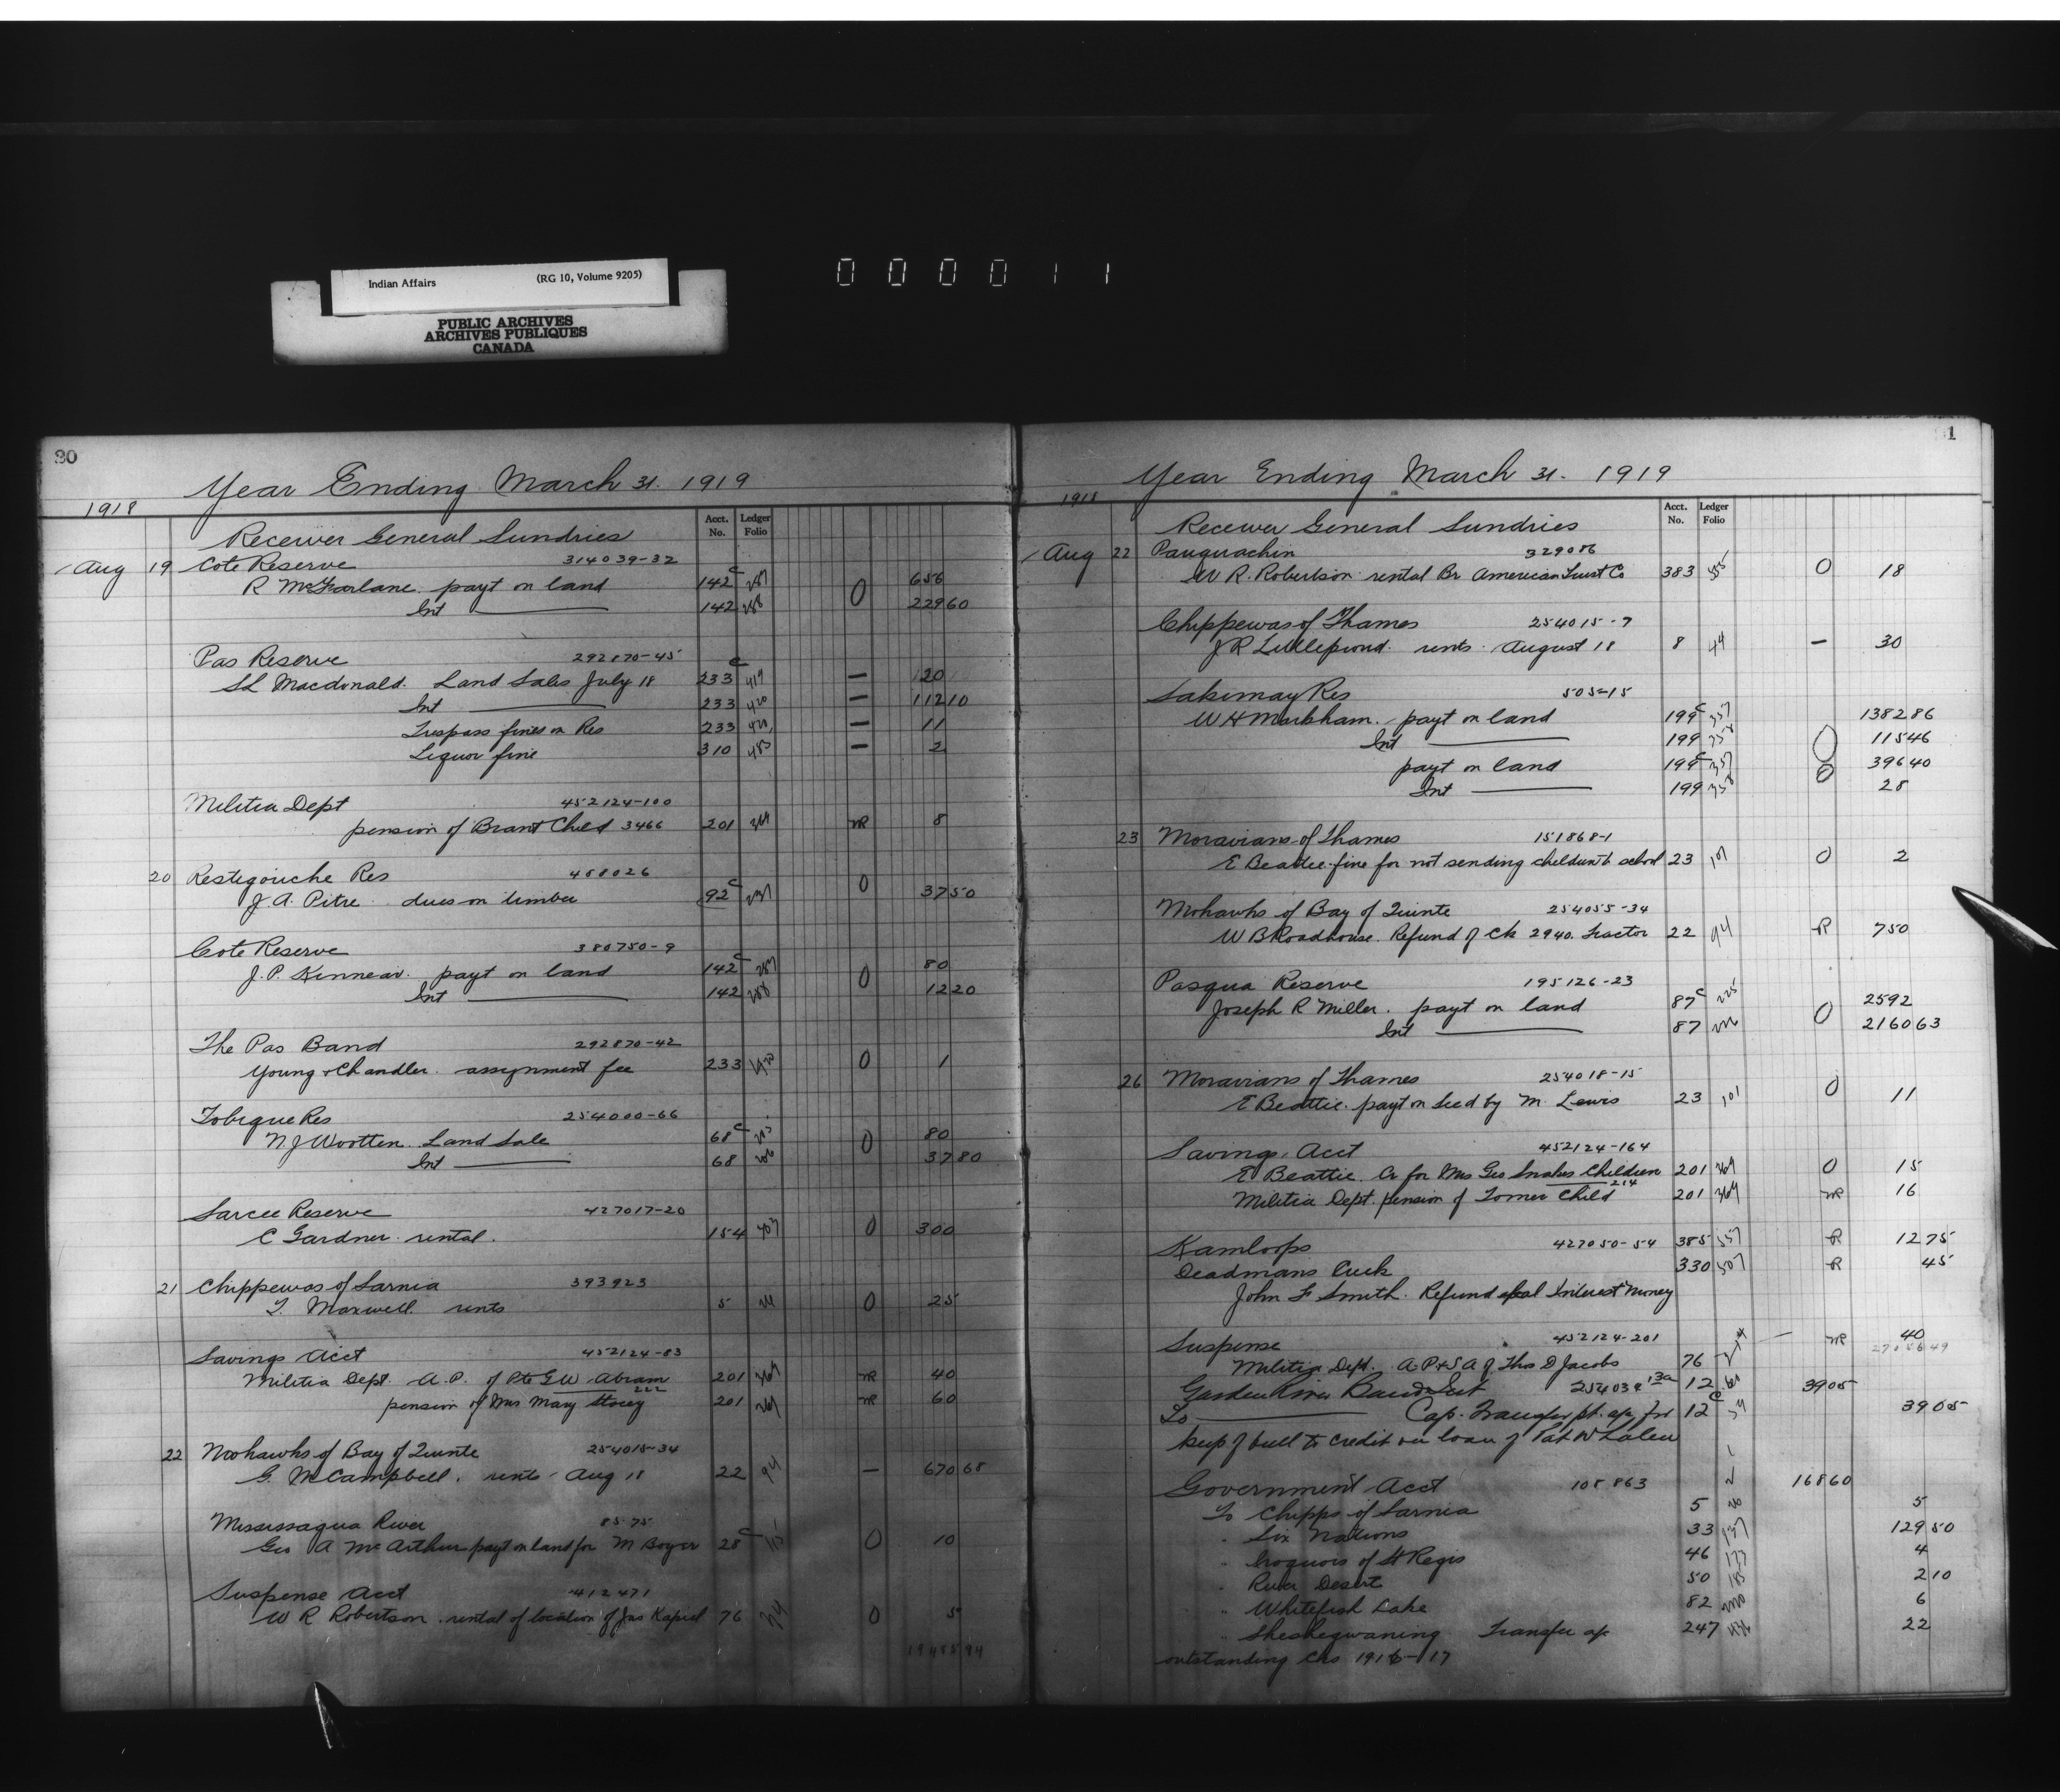 Indian Affairs (RG 10, Volume 9205)
PUBLIC ARCHIVES
ARCHIVES PUBLIQUES
CANADA
000011
30
Year Ending March 31. 1919
1918
Acct. No. Ledger Folio
Receiver General Sundries
Aug 19 Cote Reserve 314039-32
R McFarlane payt on land 142c 287 0 656
Int 142 288 22960
Pas Reserve 292870-45
SL Macdonald. Land Sales July 18 233c 419 — 120
Int 233 420 — 11210
Trespass fines on Res 233 420 — 11
Liquor fine 310 483 — 2
Militia Dept 452124-100
pension of Brant Child 3466 201 369 MR 8
20 Restigouche Res 458026
J. A. Pitre dues on timber 92c 237 0 3750
Cote Reserve 380750-9
J. P. Kinnear. payt on land 142c 287 0 80
Int 142 288 1220
The Pas Band 292870-42
Young & Chandler. assignment fee 233 420 0 1
Tobique Res 254000-66
N J Wootten. Land Sale 68c 0 80
Int 68 3780
Sarcee Reserve 427017-20
C Gardner. rental. 154 307 0 300
21 Chippewas of Sarnia 393923
T. Maxwell rents 5 0 25
Savings Acct 452124-83
Militia Dept. A.P. of Pte G W Abram 201 369 MR 40
222
pension of Mrs Mary Storey 201 369 MR 60
22 Mohawks of Bay of Quinte 254015-34
G. M Campbell. rents Aug 18 22 94 — 67068
Mississagua River 85-75
Geo A McArthur payt on land for M Boyer 28c 115 0 10
Suspense Acct 412471
W R Robertson. rental of location of Jas Kapiel 76 0 5
1
Year Ending March 31. 1919
1918
Acct. No. Ledger Folio
Receiver General Sundries
Aug 22 Pauquachin 329086
W R. Robertson rental Br American Trust Co 383 555 0 18
Chippewas of Thames 254015-7
J R Littleproud. rents August 18 8 44 — 30
Sakimay Res 505-15
W H Markham. payt on land 199c 357 138286
Int 199 358 0 11546
payt on land 199c 357 39640
Int 199 358 0 28
23 Moravians of Thames 151868-1
E Beattie fine for not sending children to school 23 101 0 2
Mohawks of Bay of Quinte 254055-34
W B Roadhouse. Refund of Ck 2940. Tractor 22 94 R 750
Pasqua Reserve 195126-23
Joseph R Miller. payt on land 87c 225 0 2592
Int 87 226 216063
26 Moravians of Thames 254018-15
E Beattie. payt on seed by M. Lewis 23 101 0 11
Savings Acct 452124-164
E Beattie. Cr for Mrs Geo Snakes Children 201 369 0 15
214
Militia Dept. pension of Tomer Child 201 369 MR 16
Kamloops 427050-54 385 557 R 1275
Deadmans Creek 330 507 R 45
John F Smith. Refund of bal Interest Money
Suspense 452124-201 MR 40
Militia Dept. A.P & S A of Thos D Jacobs 76
Garden River Band 254039 13a 12 3905
To Cap. Transfer pt. 12c 3905
keep of bull to credit on loan of Pat Whalen
Government Acct 108863 2 16860
To Chipps of Sarnia 5 5
" Six Nations 33 137 12950
" Iroquois of St Regis 46 177 4
" River Desert 50 185 210
" Whitefish Lake 82 6
" Sheshegwaning Transfer 247 22
outstanding Chs 1916-17